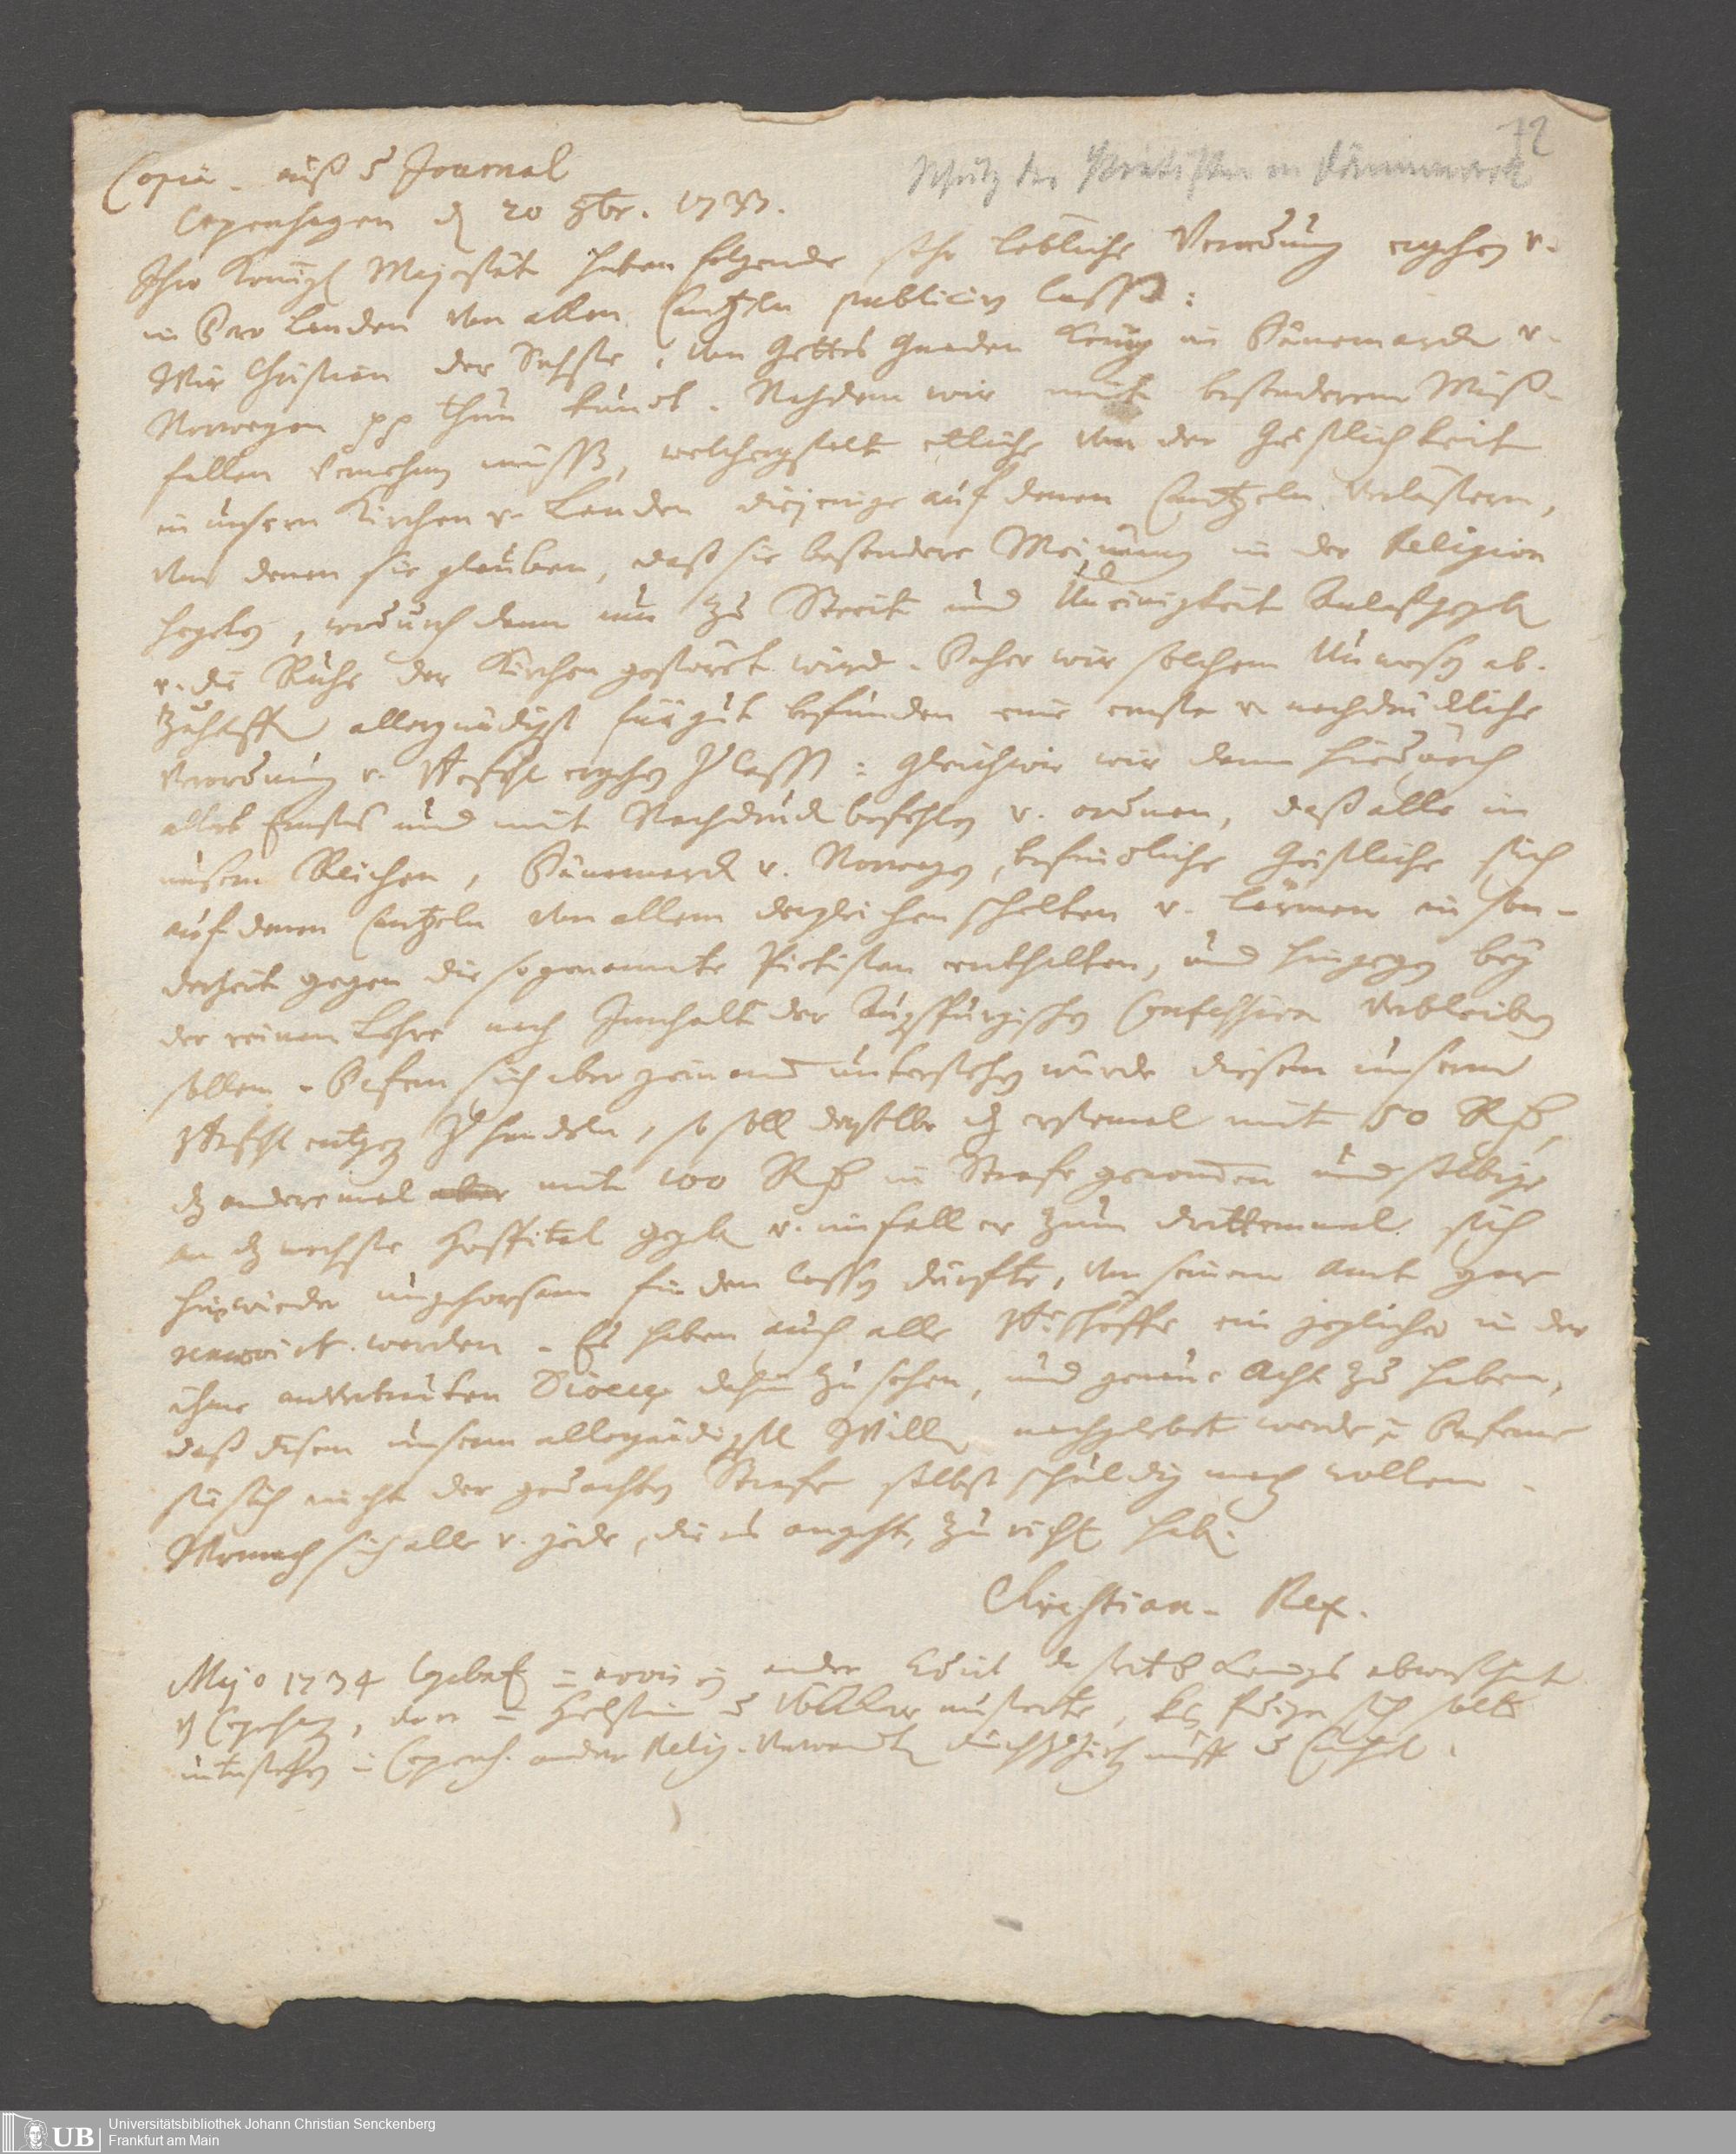 72
Schutz der Pietisten in Dännemarck
Copia. auß d Journal
Copenhagen d 20 8br. 1733.
Ihro Königl Majestät haben folgende sehr löbliche Verordnung ergehen v.
in Dero Landen von allen Cantzeln publiciren lassen:
Wir Christian der Sechste, von Gottes Gnaden König in Dänemarck v.
Norwegen pp thun kundt. Nachdem wir mit besonderem Miß-
fallen vernehmen müssen, welchergestalt etliche von der Geistlichkeit
in unsern Kirchen v. Landen diejenige auf denen Cantzeln verlästern,
von denen sie glauben, daß sie besondere Meinung in der Religion
hegeten, wodurch dann nun zu Streit und Uneinigkeit Anlaß gegeben
v. die Ruhe der Kirchen gestöret wird. Daher wir solchem Unwesen ab-
zuhelffen allergnädigst für gut befunden eine ernste v. nachdrückliche
Verordnung v. Befehl ergehen zu lassen: Gleichwie wir denn hierdurch
alles Ernstes und mit Nachdruck befehlen v. ordnen, daß alle in
unsern Reichen, Dänemarck v. Norwegen, befindliche Geistliche sich
auf denen Cantzeln von allem dergleichen schelten v. lärmen in son-
derheit gegen die sogenannte Pietisten enthalten, und hingegen bey
der reinen Lehre nach Innhalt der Augspurgischen Confession verbleiben
sollen. Dafern sich aber jemand unterstehen würde diesem unserm
Befehl entgegen zu handeln, so soll derselbe das erstemal mit 50 Rth,
das anderemal aber mit 100 Rth in Strafe genommen und selbige
an das nechste Hospital gegeben v. im fall er zum drittenmal sich
hierwieder ungehorsam finden lassen dürfte, von seinem Amt gar
removirt werden. Es haben auch alle Bischöffe ein jeglicher in der
ihme anvertrauten Dioeces dahin zu sehen, und genaue Acht zu haben,
daß disem unserm allergnädigsten Willen nachgelebet werde, Daferne
sie sich nicht der gedachten Strafe selbst schuldig machen wollen.
Wornach sich alle v. jede, die es angeht, zu richten haben.
Christian. Rex.
Majo 1734
Copenhagen, Holstein
Copenh. ander Relig. verwandten